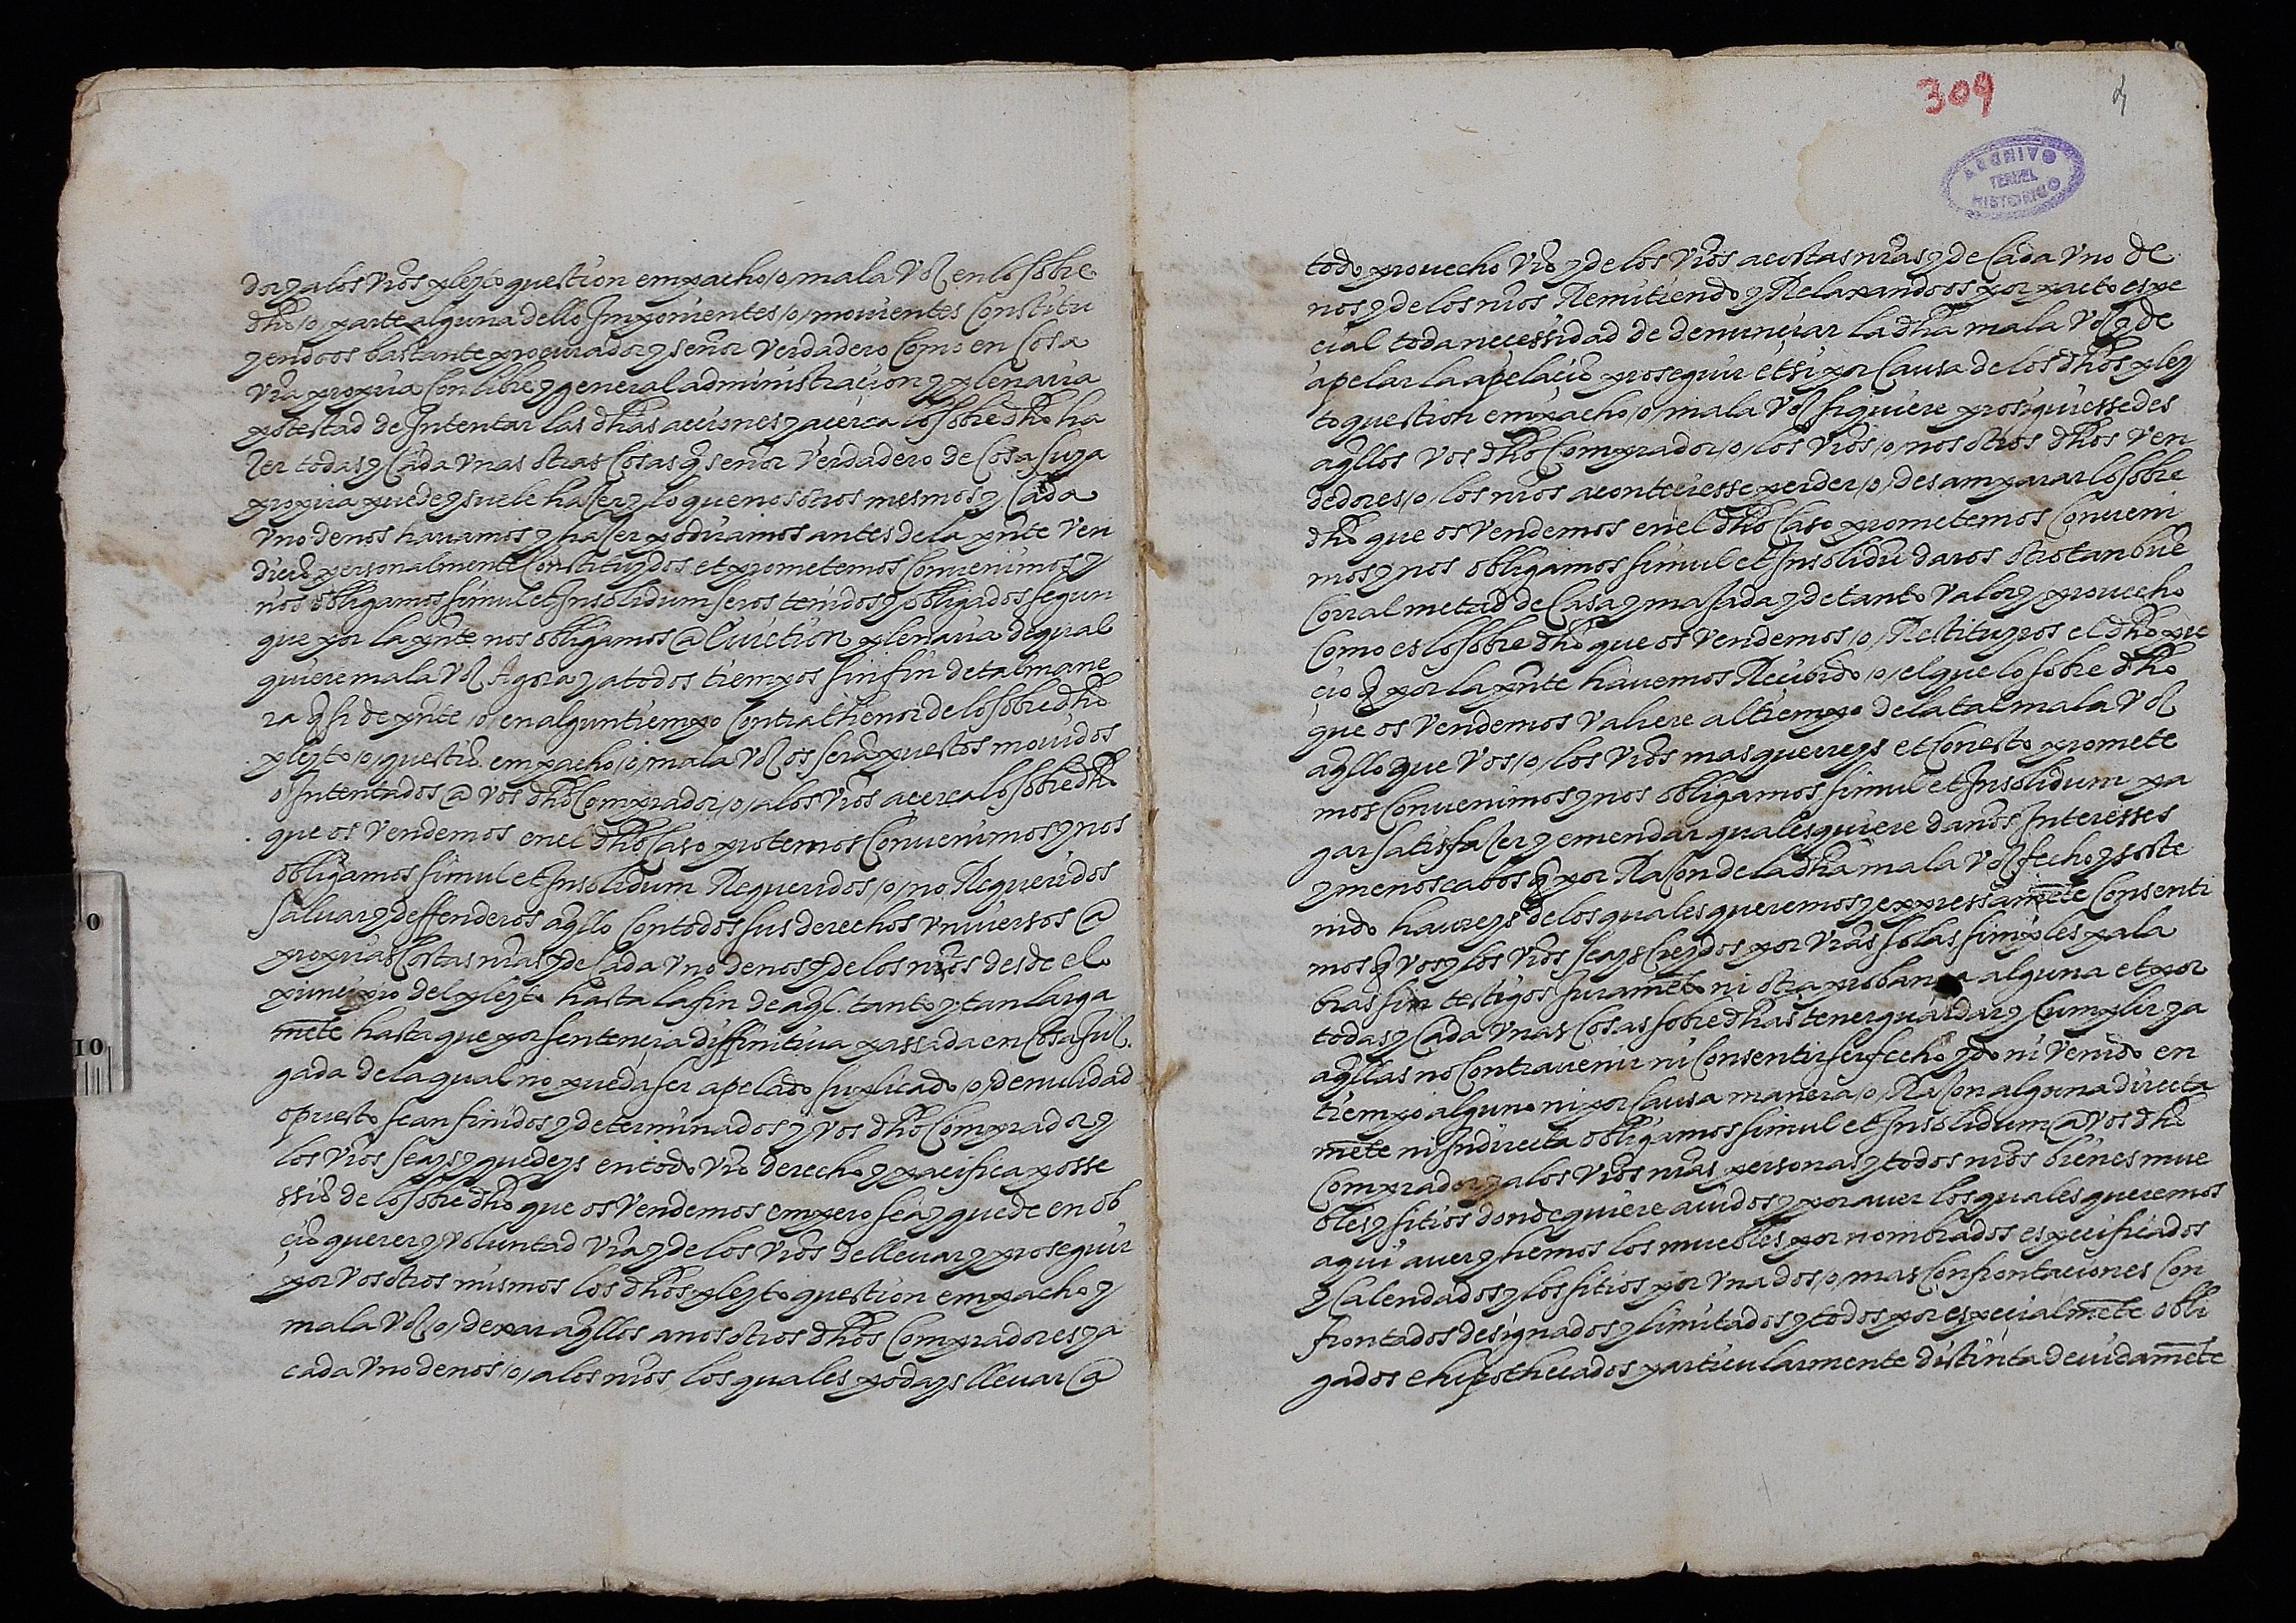 dor y a los vros pleyto question empacho /o/ mala voz en lo sobre
dho /o/ parte alguna dello Imponientes /o/ mouientes Constitu
yendoos bastante procurador y señor verdadero Como en Cosa
vra propia Con libre y general administracion y plenaria
potestad de Intentar las dhas acciones y acerca lo sobredho ha
zer todas y Cada vnas otras Cosas q señor verdadero de Cosa suya
propia puede y suele hazer y lo que nosotros mesmos y Cada
vno de nos hariamos y hazer podriamos antes de la pnte ven
dicio personalmente Constituydos et prometemos Conuenimos y
nos obligamos simul et Insolidum seros tenidos y obligados segun
que por la pnte nos obligamos @ Euiction plenaria de qual
quiere mala voz Agora y a todos tiempos sin fin de tal mane
ra q si de pnte /o/ en algun tiempo Contra thenor de lo sobredho
pleyto /o/ questio empacho /o/ mala voz os sera puestos mouidos
o Intentados @ vos dho Comprador /o/ a los vros acerca lo sobredho
que os vendemos en el dho Caso protemos Conuenimos y nos
obligamos simul et Insolidum Requeridos /o/ no Requeridos
saluar y deffenderos aqllo Con todos sus derechos vniuersos @
propias Costas nras y de Cada vno de nos y de los nros desde el
principio del pleyto hasta la fin de aql. tanto y tan larga
mete hasta que por sentencia diffinitiua passada en Cosa Juz
gada de la qual no pueda ser apelado suplicado o/ de nulidad
opuesto sean finidos y determinados y vos dho Comprador y
los vros seays y quedeys en todo vro derecho y pacifica posse
ssio de lo sobredho que os vendemos empero sea y quede en ob
cio querer y voluntad vra y de los vros de lleuar y proseguir
por vosotros mismos los dhos pleyto question empacho y
mala voz /o/ dexar aqllos a nosotros dhos Compradores y a
cada vno de nos /o/ a los nros, los quales podays lleuar @
309
ARCHIVO HISTORICO
TERUEL
todo prouecho vro y de los vros a costas nras y de Cada vno de
nos y de los nros Remitiendo y Relaxandoos por pacto espe
cial toda necessidad de denunciar la dha mala voz y de
apelar la apelacio proseguir et si por Causa de los dhos pley
to question empacho /o/ mala voz siquiere prosiguiessedes
aqllos vos dho Comprador /o/ los vros /o/ nosotros dhos ven
dedores /o/ los nros aconteciesse perder /o/ desamparar lo sobre
dho que os vendemos en el dho Caso prometemos Conueni
mos y nos obligamos simul et Insolidu daros otro tan bue
Corral metad de Casa y masada y de tanto valor y prouecho
Como es lo sobredho que os vendemos /o/ Restituyros el dho pre
cio q por la pnte hauemos Recibido /o/ el que lo sobre dho
que os vendemos valiere al tiempo de la tal mala voz
aqllo que vos /o/ los vros mas querreys et Con esto promete
mos Conuenimos y nos obligamos simul et Insolidum pa
gar satisfazer y emendar qualesquiere daños Interesses
y menoscabos q por Razon de la dha mala voz fecho y soste
nido haureys de los quales queremos y expressamete Consenti
mos q vos y los vros seays Creydos por vras solas simples pala
bras sin testigos Juramento ni otra probança alguna et por
todas y Cada vnas Cosas sobredhas tener guardar y Cumplir y a
aqllas no Contrauenir ni Consentir ser fecho ydo ni venido en
tiempo alguno ni por Causa manera /o/ Razon alguna directa
mete ni Indirecta obligamos simul et Insolidum @ vos dho
Comprador y a los vros nras personas y todos nros bienes mue
bles y sitios donde quiere auidos y por auer los quales queremos
aqui auer y hemos los muebles por nombrados especificados
y Calendados y los sitios por vna dos /o/ mas Confrontaciones Con
frontados designados y limitados y todos por especialmete obli
gados e hipothecados particularmente distinta deuidamete